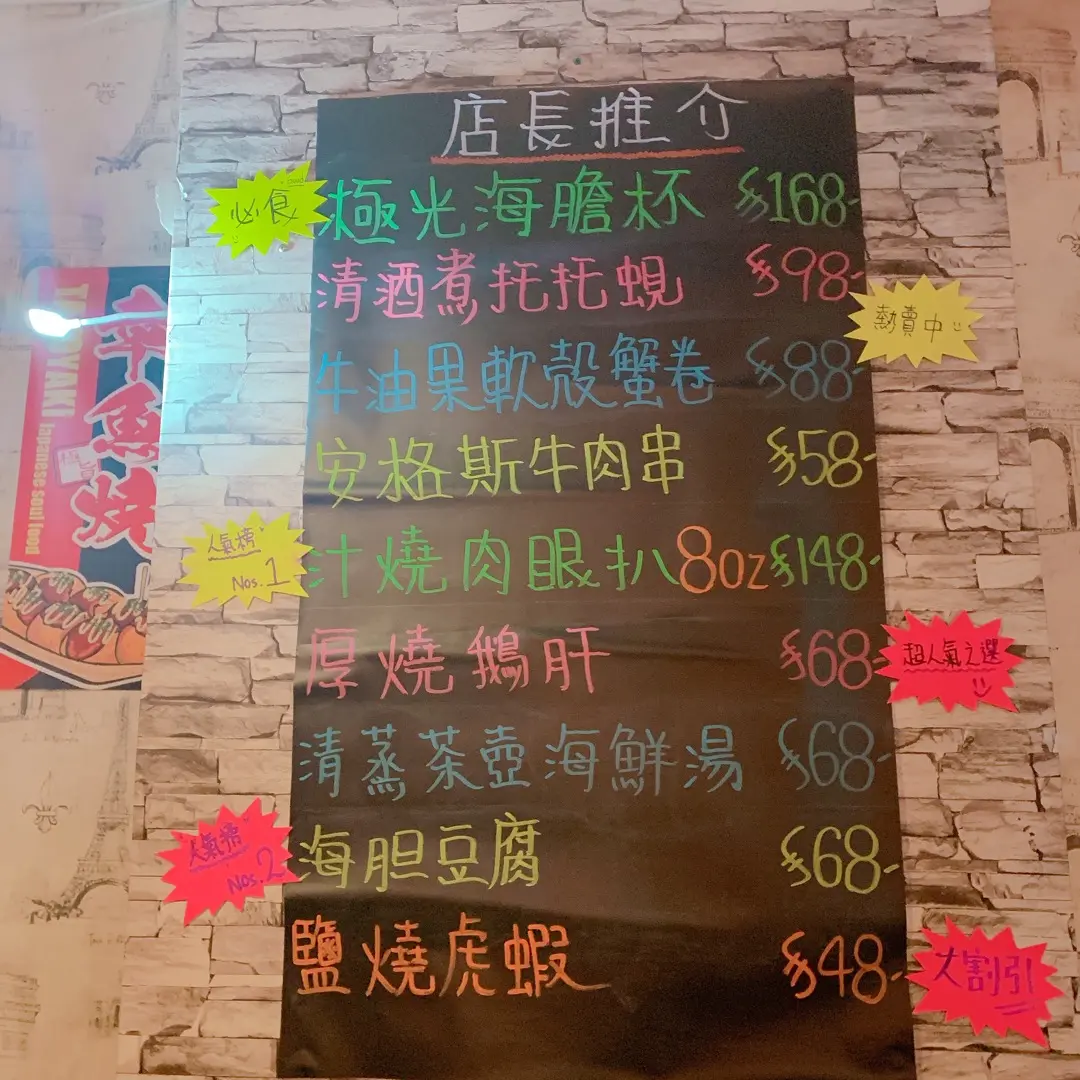 店長推介
必食
極光海膽杯 $168-
清酒煮托托蜆 $98-
熱賣中
牛油果軟殼蟹卷 $88-
安格斯牛肉串 $58-
人氣榜
Nos.1
汁燒肉眼扒8oz $148-
厚燒鵝肝 $68-
超人氣之選
清蒸茶壺海鮮湯 $68-
人氣榜
Nos.2
海胆豆腐 $68-
鹽燒虎蝦 $48-
大割引
章魚燒
YAKI
Japanese soul food